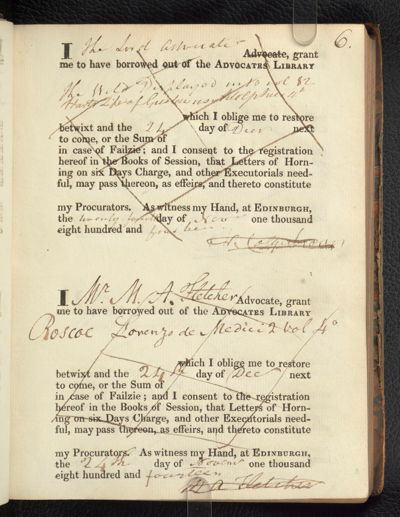 6.
I The Lord Advocate Advocate, grant
me to have borrowed out of the ADVOCATES LIBRARY
The World Displayed in 10 vol 82
which I oblige me to restore
betwixt and the 24 day of Decr next
to come, or the Sum of
in case of Failzie; and I consent to the registration
hereof in the Books of Session, that Letters of Horn-
ing on six Days Charge, and other Executorials need-
ful, may pass thereon, as effeirs, and thereto constitute
my Procurators. As witness my Hand, at EDINBURGH,
the twenty fourth day of Novr one thousand
eight hundred and fourteen
A. Colquhoun
I Mr. M. A. Fletcher Advocate, grant
me to have borrowed out of the ADVOCATES LIBRARY
Roscoe Lorenzo de Medici 2 vol 4o
which I oblige me to restore
betwixt and the 24th day of Dec next
to come, or the Sum of
in case of Failzie; and I consent to the registration
hereof in the Books of Session, that Letters of Horn-
ing on six Days Charge, and other Executorials need-
ful, may pass thereon, as effeirs, and thereto constitute
my Procurators. As witness my Hand, at EDINBURGH,
the 24th day of Novem one thousand
eight hundred and fourteen
M A Fletcher